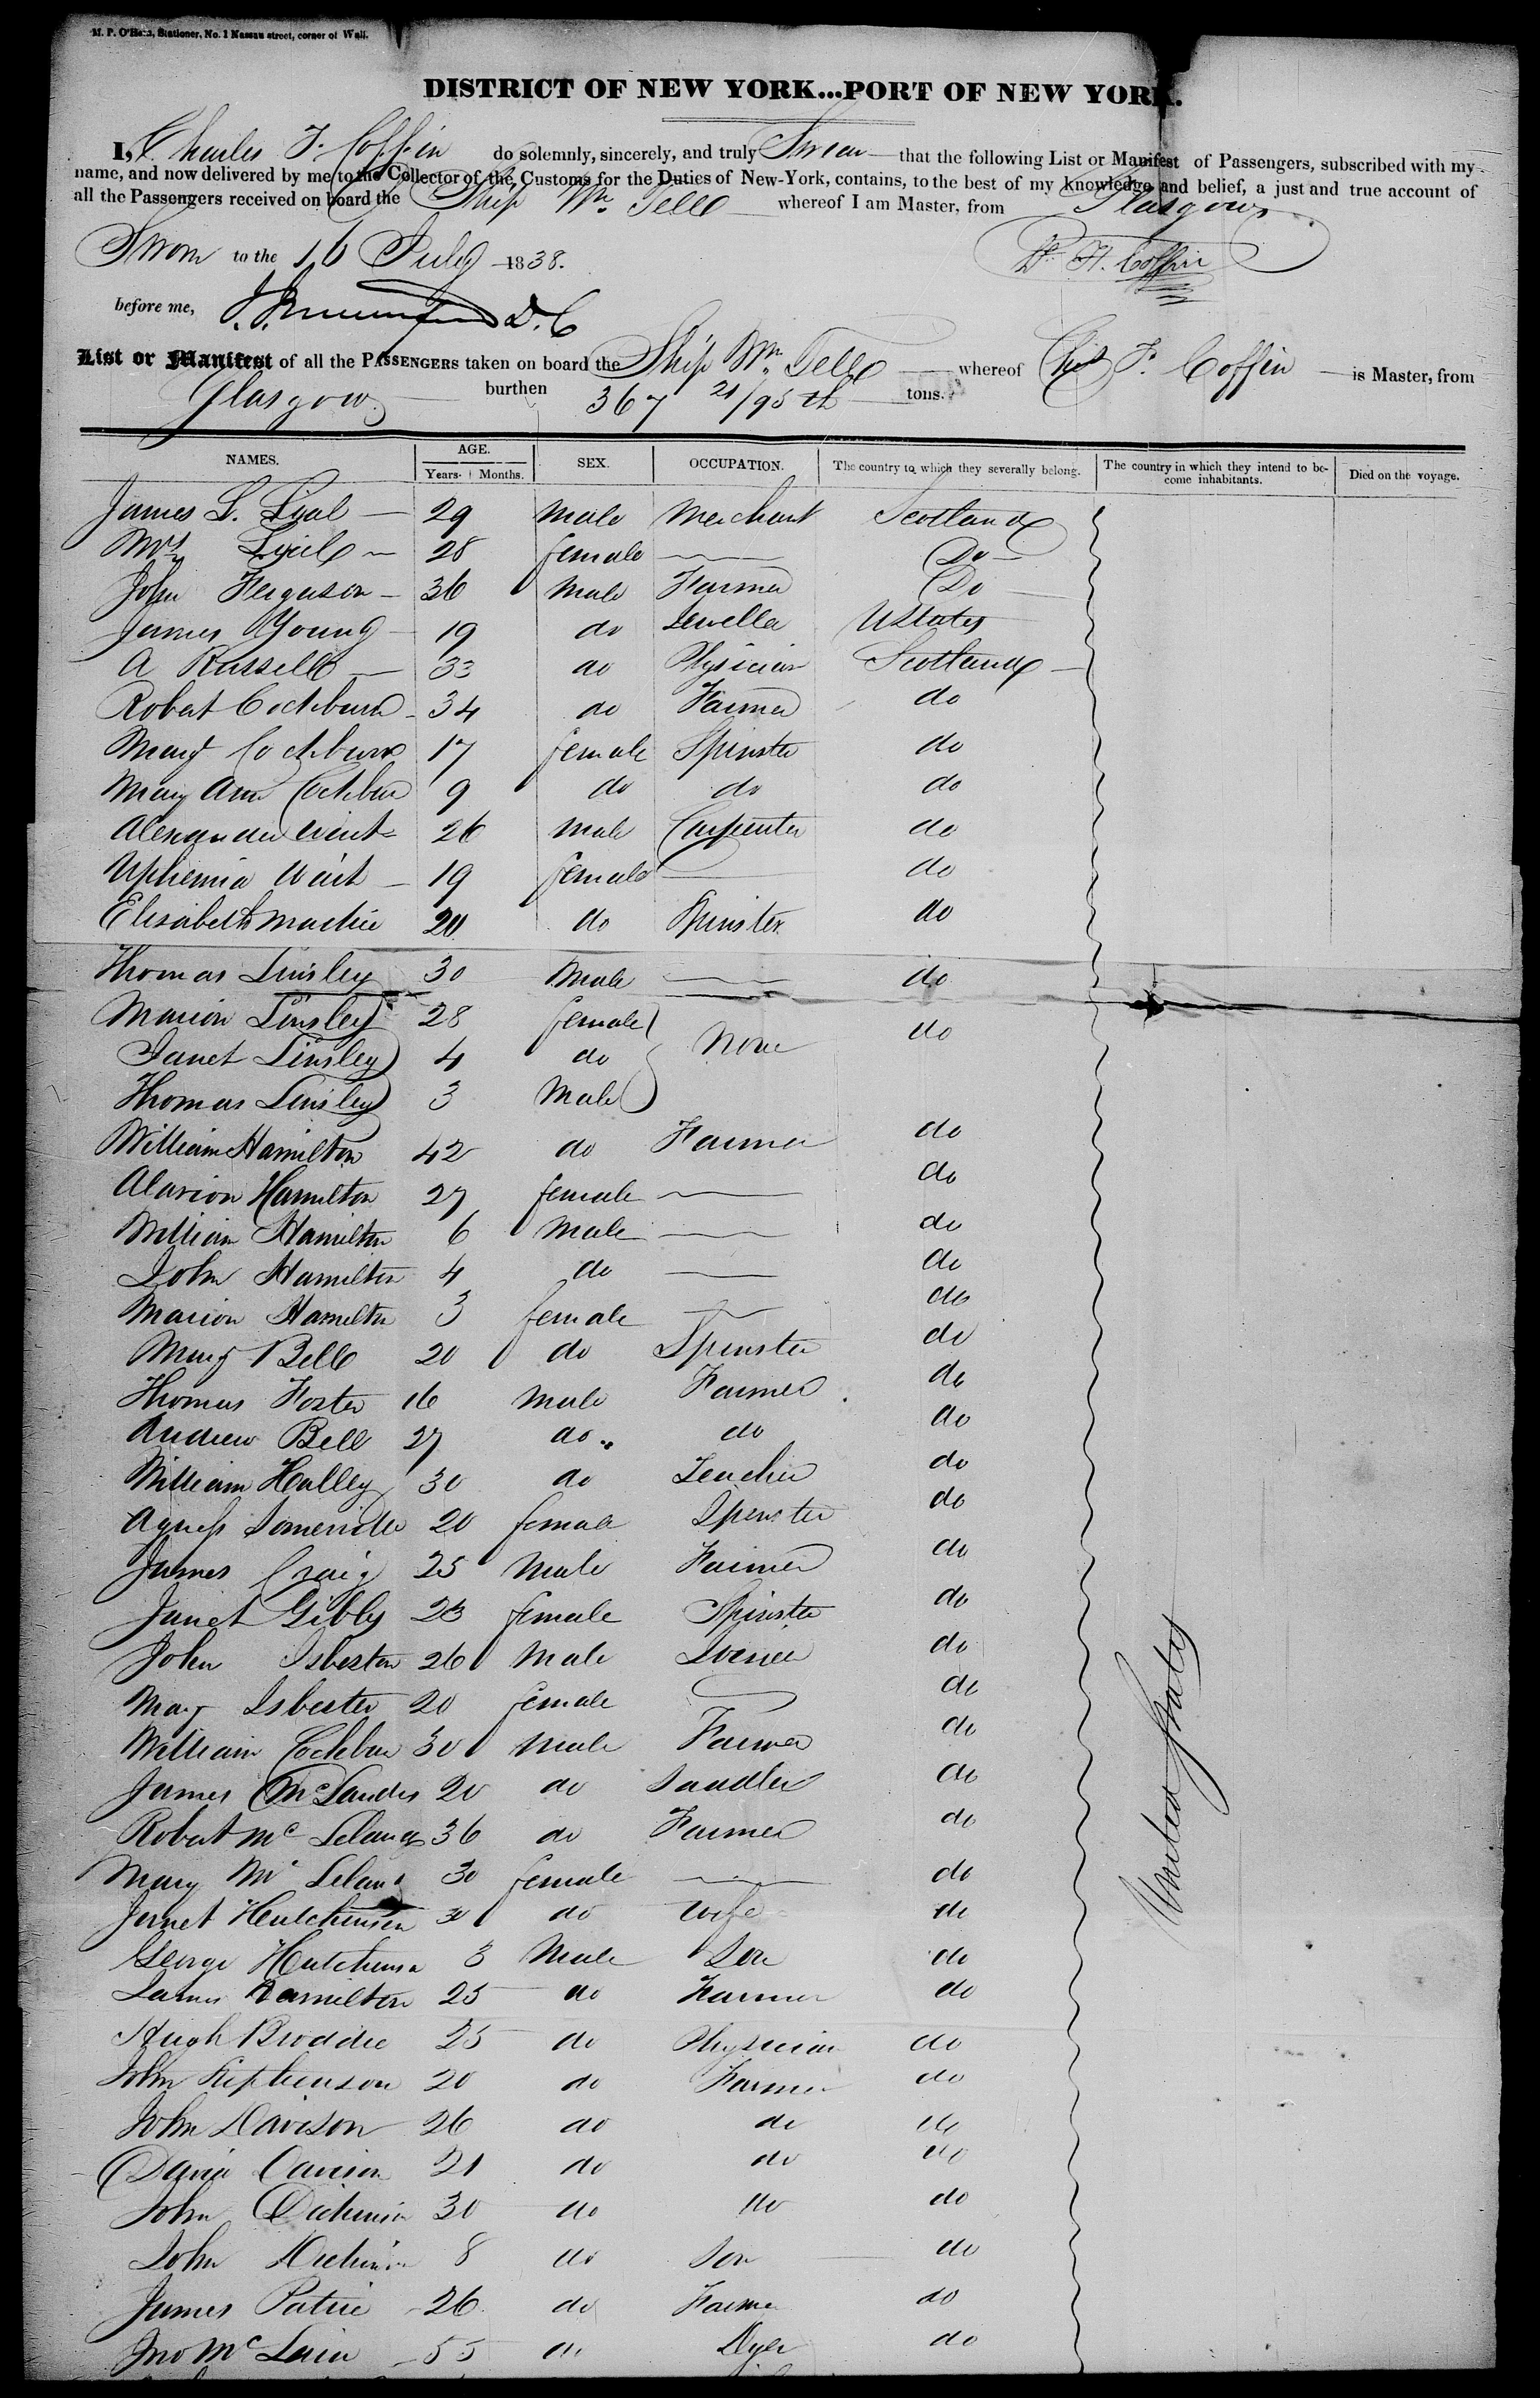 M. P. O'Hara, Stationer, No. 1 Nassau street, corner of Wall.
DISTRICT OF NEW YORK...PORT OF NEW YORK.
I, Charles F. Coffin do solemnly, sincerely, and truly Swear that the following List or Manifest of Passengers, subscribed with my
name, and now delivered by me to the Collector of the Customs for the Duties of New-York, contains, to the best of my knowledge and belief, a just and true account of
all the Passengers received on board the Ship Wm Tell whereof I am Master, from Glasgow
Sworn to the 16 July 1838. Coffin
before me, D. C
List or Manifest of all the PASSENGERS taken on board the Ship Wm Tell whereof Chs F. Coffin is Master, from
Glasgow burthen 367 21/95th tons.
NAMES. AGE. Years. Months. SEX. OCCUPATION. The country to which they severally belong. The country in which they intend to become inhabitants. Died on the voyage.
James S. Lyal 29 Male Merchant Scotland
Mrs Lyal 28 female Do
John Ferguson 36 Male Farmer Do
James Young 19 do Jeweller UStates
A Russell 33 do Physician Scotland
Robert Cockburn 34 do Farmer do
Mary Cockburn 17 female Spinster do
Mary Ann Cockburn 9 do do do
Alexander 26 Male Carpenter do
Uphemia Wait 19 female do
Elisabeth Mackie 20 do Spinster do
Thomas Linsley 30 Male do
Marion Linsley 28 female None do
Janet Linsley 4 do
Thomas Linsley 3 Male
William Hamilton 42 do Farmer do
Marion Hamilton 27 female do
William Hamilton 6 Male do
John Hamilton 4 do do
Marion Hamilton 3 female do
Mary Bell 20 do Spinster do
Thomas Foster 16 Male Farmer do
Andrew Bell 27 do do do
William Halley 30 do Teacher do
Agness Somerville 20 female Spinster do
James Craig 25 Male Farmer do
Janet Gibby 23 female Spinster do
John Isbester 26 Male do
Mary Isbester 20 female do
William Cockburn 30 Male Farmer do
James 20 do Saddler do
Robert Mc Leland 36 do Farmer do
Mary Mc Leland 30 female do
Jennet Hutchinson 30 do wife do
George Hutchinson 3 Male Son do
James Hamilton 25 do Farmer do
Hugh Broddie 25 do Physician do
John 20 do Farmer do
John Davison 26 do do do
David Davison 21 do do do
John Dickinson 30 do do do
John Dickinson 8 do Son do
James Patrie 26 do Farmer do
Jno Mc Lain 55 do Dyer do
United States